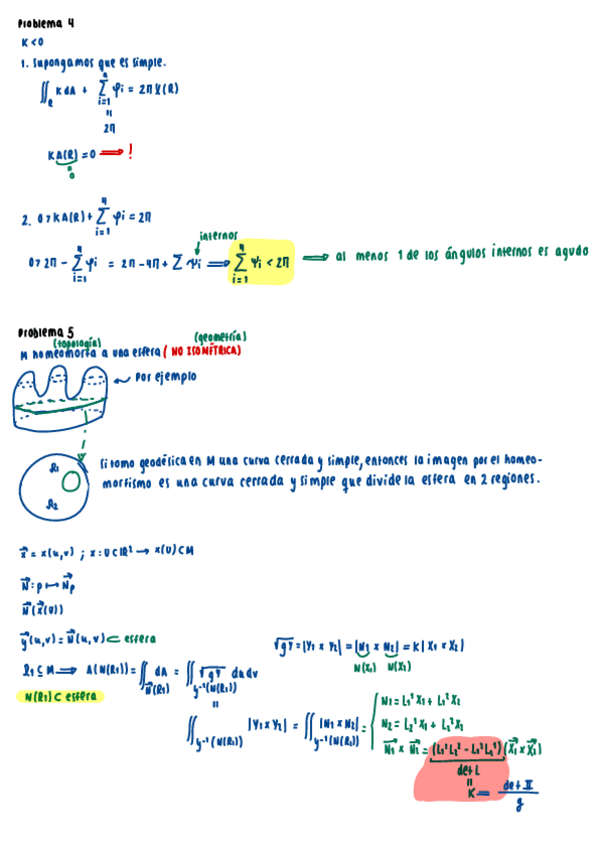 Problema 4
K<0
1. Supongamos que es simple.
∬_R K dA + Σ_{i=1}^{4} φi = 2π χ(R)
=
2π
K A(R) = 0 ⟹ !
2. 0 > K A(R) + Σ_{i=1}^{4} φi = 2π
internos
0 > 2π - Σ_{i=1}^{4} φi = 2π - 4π + Σ ψi ⟹ Σ_{i=1}^{4} ψi < 2π ⟹ al menos 1 de los ángulos internos es agudo
Problema 5
(topología) (geometría)
M homeomorfa a una esfera ( NO ISOMÉTRICA)
Por ejemplo
R1
R2
Si tomo geodésica en M una curva cerrada y simple, entonces la imagen por el homeo-
morfismo es una curva cerrada y simple que divide la esfera en 2 regiones.
x = x(u,v) ; x: U⊂ℝ² → x(U)⊂M
N: p ↦ N_p
N(x(U))
y(u,v) = N(u,v) ⊂ esfera
√g^Y = |Y1 × Y2| = |N1 × N2| = K | X1 × X2|
N(X1) N(X2)
R1 ⊆ M ⟹ A(N(R1)) = ∬_{N(R1)} dA = ∬_{y⁻¹(N(R1))} √g^Y du dv
N(R1) ⊂ esfera
=
∬_{y⁻¹(N(R1))} |Y1 × Y2| = ∬_{y⁻¹(N(R1))} |N1 × N2| =
N1 = L1¹ X1 + L1² X2
N2 = L2¹ X1 + L2² X2
N1 × N2 = (L1¹ L2² - L1² L2¹) (X1 × X2)
det L
=
K = det II / g